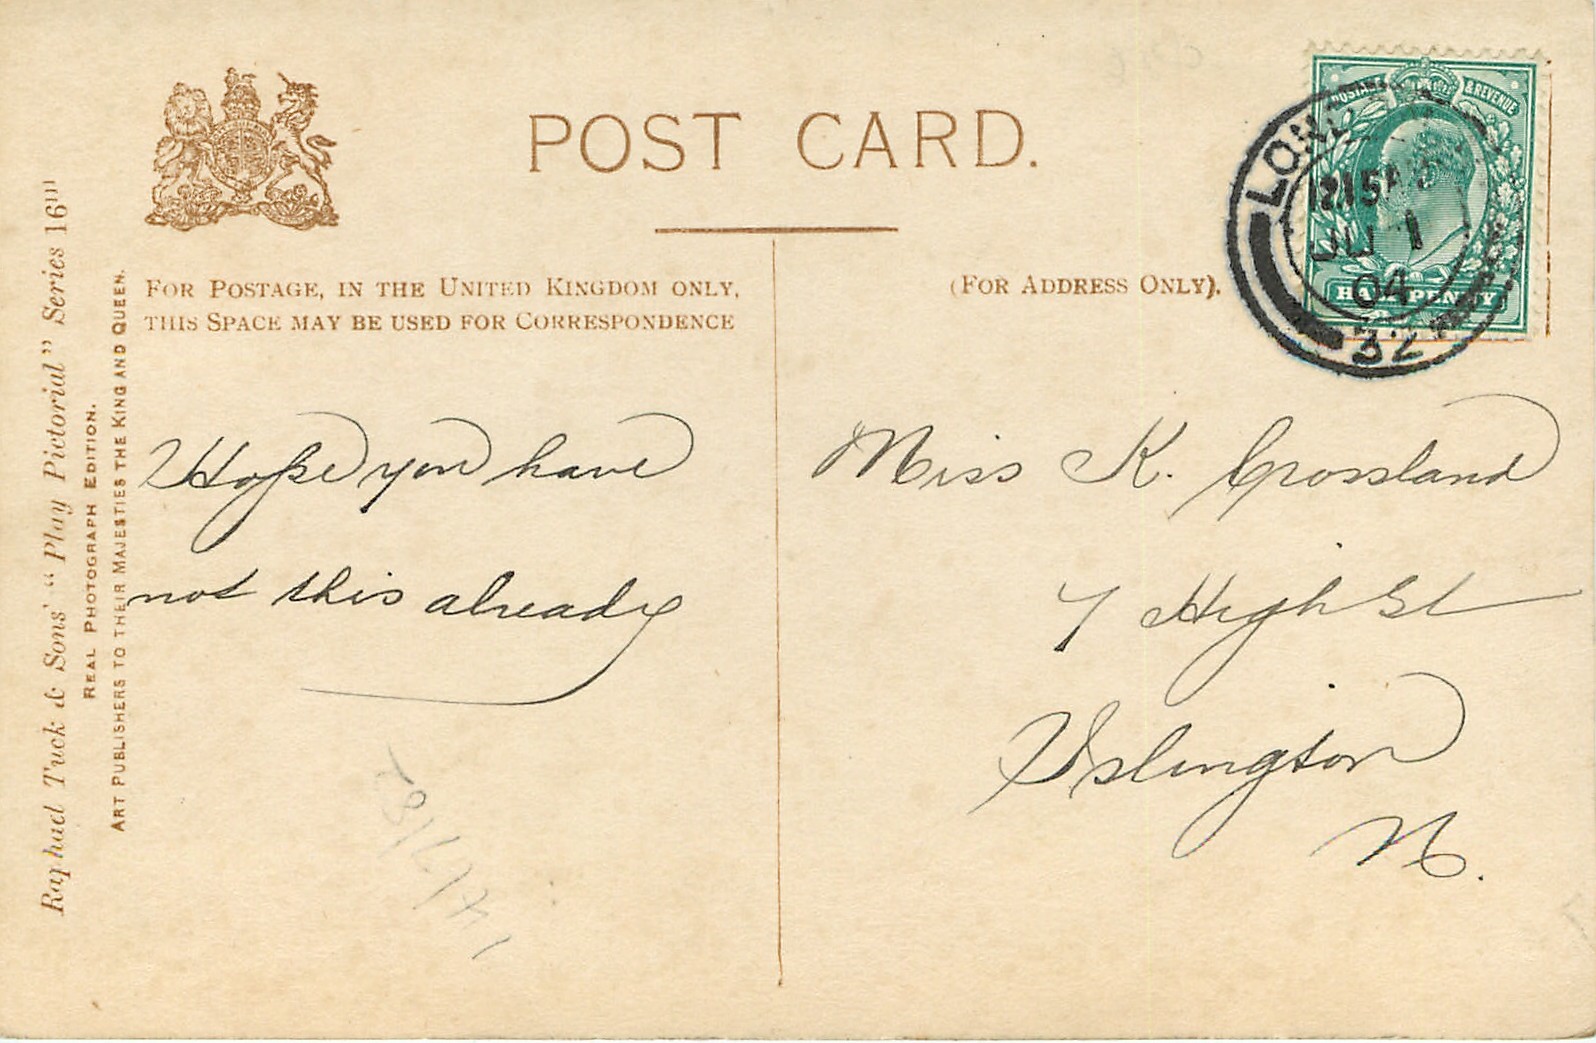 POST CARD.
FOR POSTAGE, IN THE UNITED KINGDOM ONLY,
THIS SPACE MAY BE USED FOR CORRESPONDENCE
(FOR ADDRESS ONLY).
Raphael Tuck & Sons' "Play Pictorial" Series 16
REAL PHOTOGRAPH EDITION.
ART PUBLISHERS TO THEIR MAJESTIES THE KING AND QUEEN.
POSTAGE & REVENUE
HALFPENNY
12.15 AM
JU 1
04
32
Hope you have
not this already
Miss K. Crossland
7 High St
Islington
N.